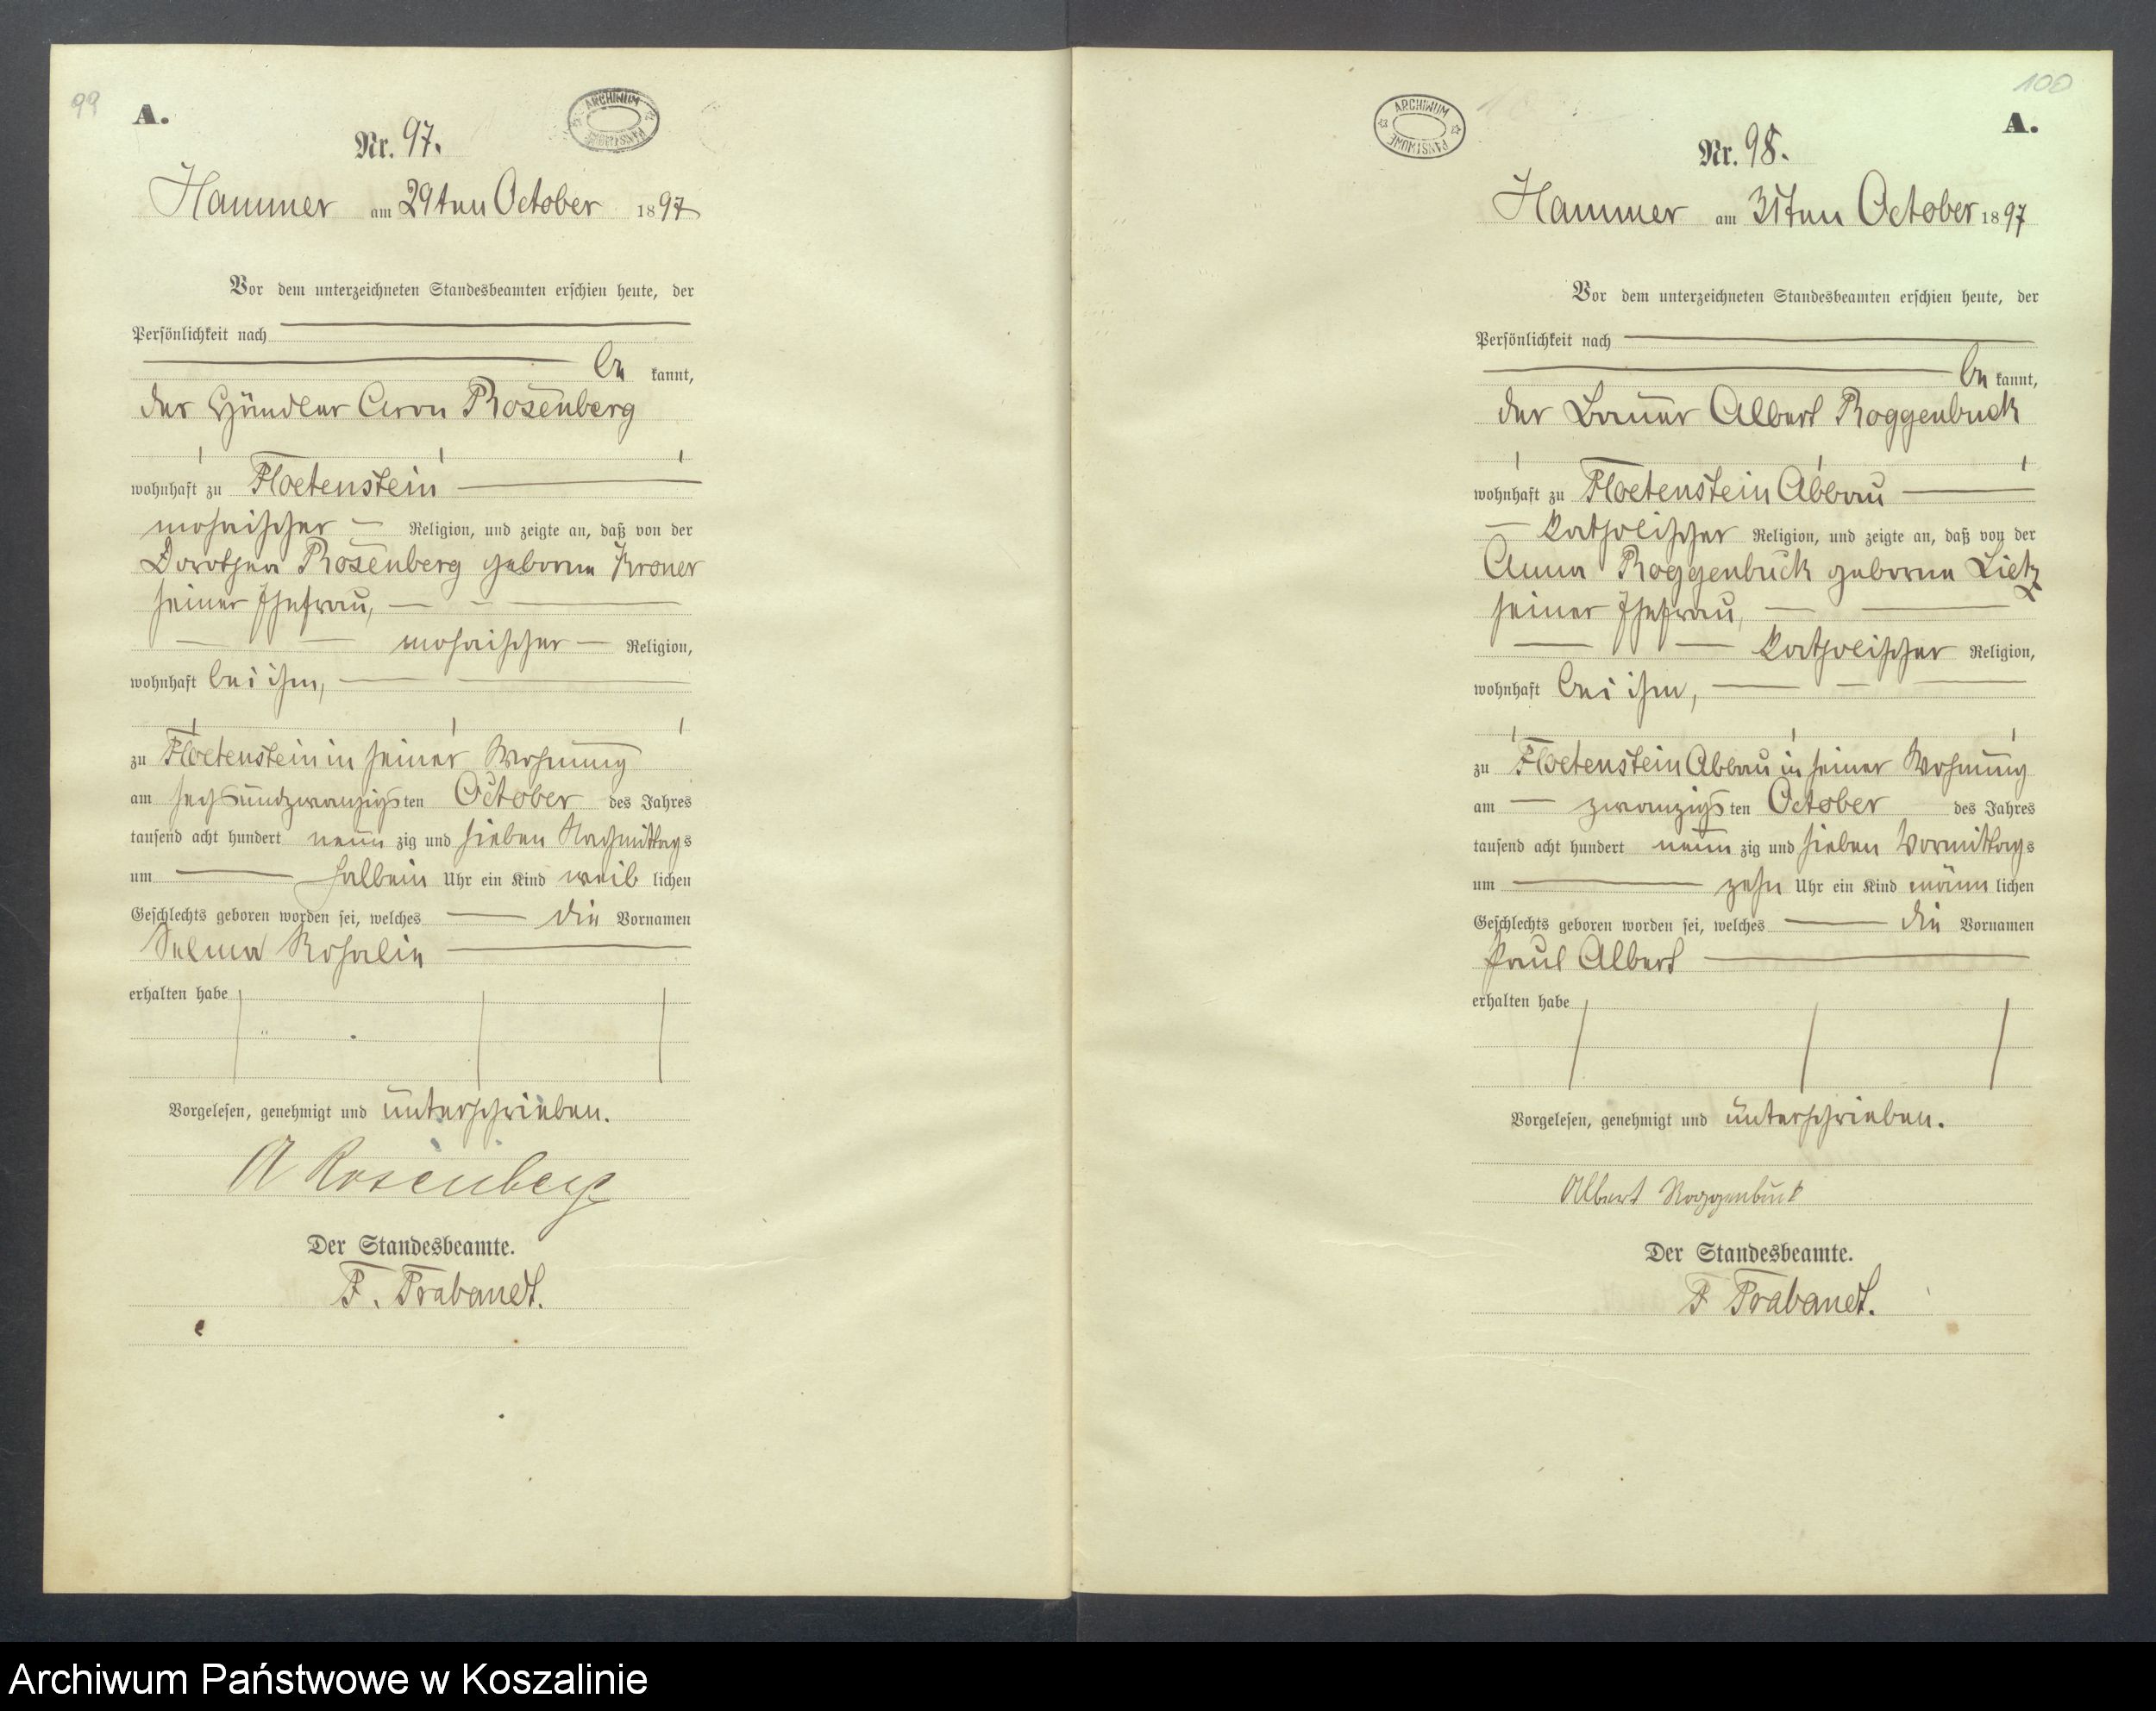 99
A.
ARCHIWUM PAŃSTWOWE
Nr. 97.
Hammer am 29ten October 1897
Vor dem unterzeichneten Standesbeamten erschien heute, der
Persönlichkeit nach
be kannt,
der Händler Aron Rosenberg
wohnhaft zu Floetenstein
mosaischer Religion, und zeigte an, daß von der
Dorothea Rosenberg geborne Kroner
seiner Ehefrau,
mosaischer Religion,
wohnhaft bei ihm,
zu Floetenstein in seiner Wohnung
am sechsundzwanzigsten October des Jahres
tausend acht hundert neun zig und sieben Nachmittags
um halbein Uhr ein Kind weib lichen
Geschlechts geboren worden sei, welches die Vornamen
Selma Rosalie
erhalten habe
Vorgelesen, genehmigt und unterschrieben.
A Rosenberg
Der Standesbeamte.
F. Trabandt.
100
A.
ARCHIWUM PAŃSTWOWE
Nr. 98.
Hammer am 31ten October 1897
Vor dem unterzeichneten Standesbeamten erschien heute, der
Persönlichkeit nach
be kannt,
der Bauer Albert Roggenbuck
wohnhaft zu Floetenstein Abbau
katholischer Religion, und zeigte an, daß von der
Anna Roggenbuck geborne Lietz
seiner Ehefrau,
katholischer Religion,
wohnhaft bei ihm,
zu Floetenstein Abbau in seiner Wohnung
am zwanzigsten October des Jahres
tausend acht hundert neun zig und sieben Vormittags
um zehn Uhr ein Kind männ lichen
Geschlechts geboren worden sei, welches die Vornamen
Paul Albert
erhalten habe
Vorgelesen, genehmigt und unterschrieben.
Albert Roggenbuck
Der Standesbeamte.
F Trabandt.
Archiwum Państwowe w Koszalinie